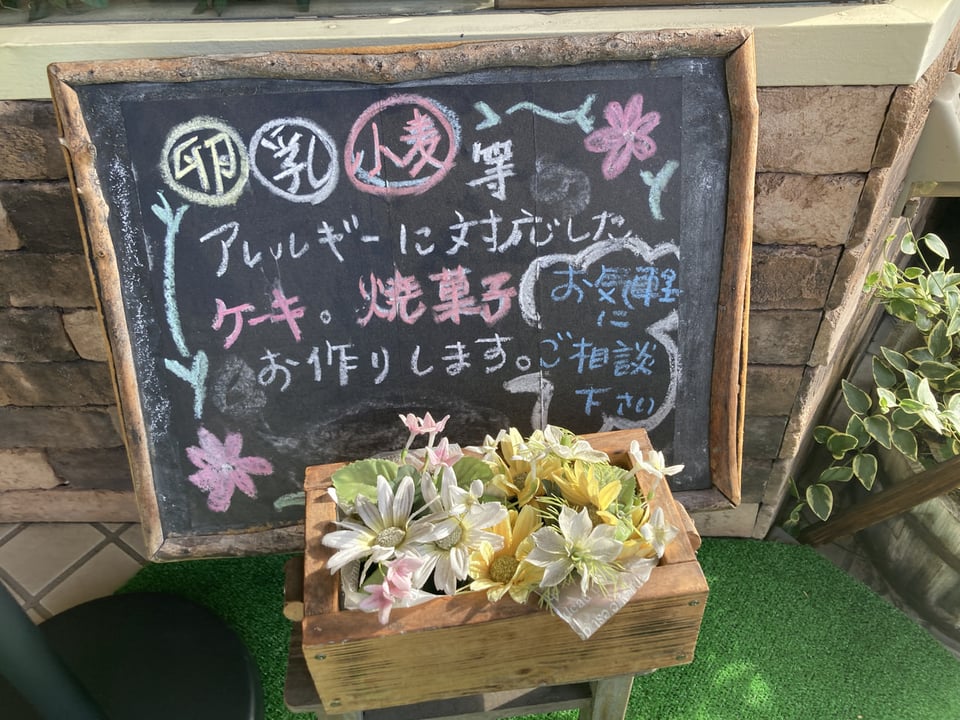 卵 乳 小麦 等
アレルギーに対応した
ケーキ。焼菓子
お作りします。
お気軽
に
ご相談
下さい